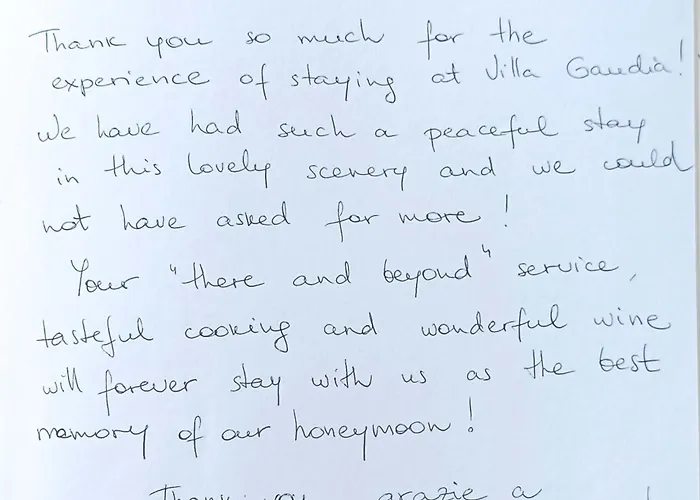 Thank you so much for the
experience of staying at Villa Gaudia!
We have had such a peaceful stay
in this lovely scenery and we could
not have asked for more!
Your "there and beyond" service,
tasteful cooking and wonderful wine
will forever stay with us as the best
memory of our honeymoon!
Thank you grazie a